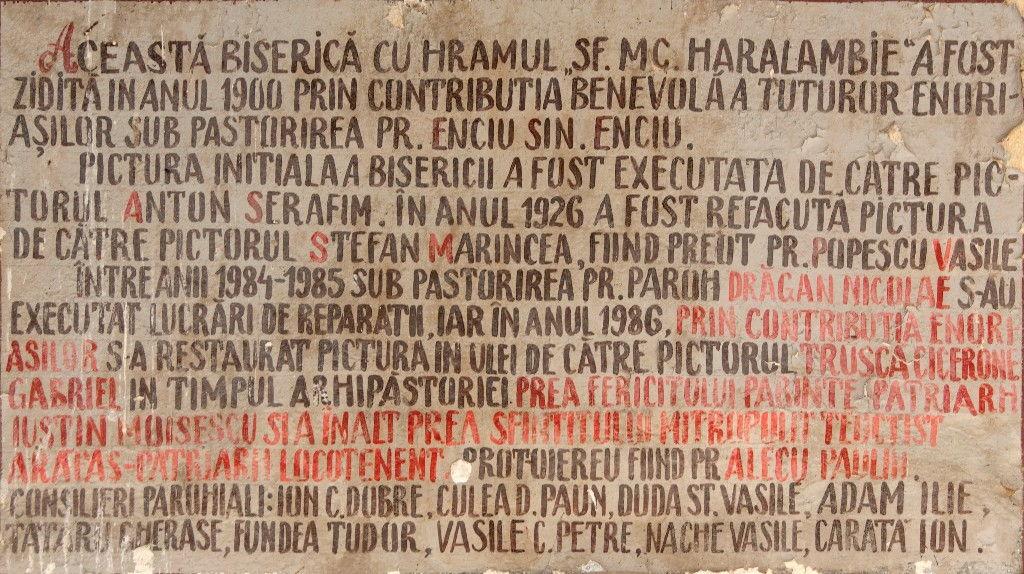 ACEASTĂ BISERICĂ CU HRAMUL „SF. MC. HARALAMBIE“ A FOST
ZIDITĂ IN ANUL 1900 PRIN CONTRIBUTIA BENEVOLĂ A TUTUROR ENORI-
AȘILOR SUB PASTORIREA PR. ENCIU SIN. ENCIU.
PICTURA INITIALA A BISERICII A FOST EXECUTATA DE CATRE PIC-
TORUL ANTON SERAFIM. ÎN ANUL 1926 A FOST REFACUTA PICTURA
DE CĂTRE PICTORUL STEFAN MARINCEA, FIIND PREOT PR. POPESCU VASILE
ÎNTRE ANII 1984-1985 SUB PASTORIREA PR. PAROH DRĂGAN NICOLAE S-AU
EXECUTAT LUCRĂRI DE REPARATII, IAR ÎN ANUL 1986, PRIN CONTRIBUTIA ENORI
ASILOR S-A RESTAURAT PICTURA IN ULEI DE CĂTRE PICTORUL TRUSCĂ CICERONE
GABRIEL IN TIMPUL ARHIPĂSTORIEI PREA FERICITULUI PARINTE PATRIARH
IUSTIN MOISESCU SI A ÎNALT PREA SFINTITULUI MITROPOLIT TEOCTIST
ARAPAS-PATRIARH LOCOTENENT. PROTOIEREU FIIND PR. ALECU PAULIN.
CONSILIERI PARUHIALI: ION C. DOBRE, CULEA D. PAUN, DUDA ST. VASILE, ADAM ILIE,
TATARU GHERASE, FUNDEA TUDOR, VASILE C. PETRE, NACHE VASILE, CARATĂ ION.